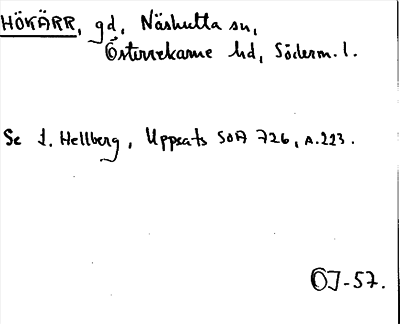 HÖKÄRR, gd, Näshulta sn,
Österrekarne hd, Söderm. l.
Se L. Hellberg, Uppsats SOA 726, A.223.
OJ-57.